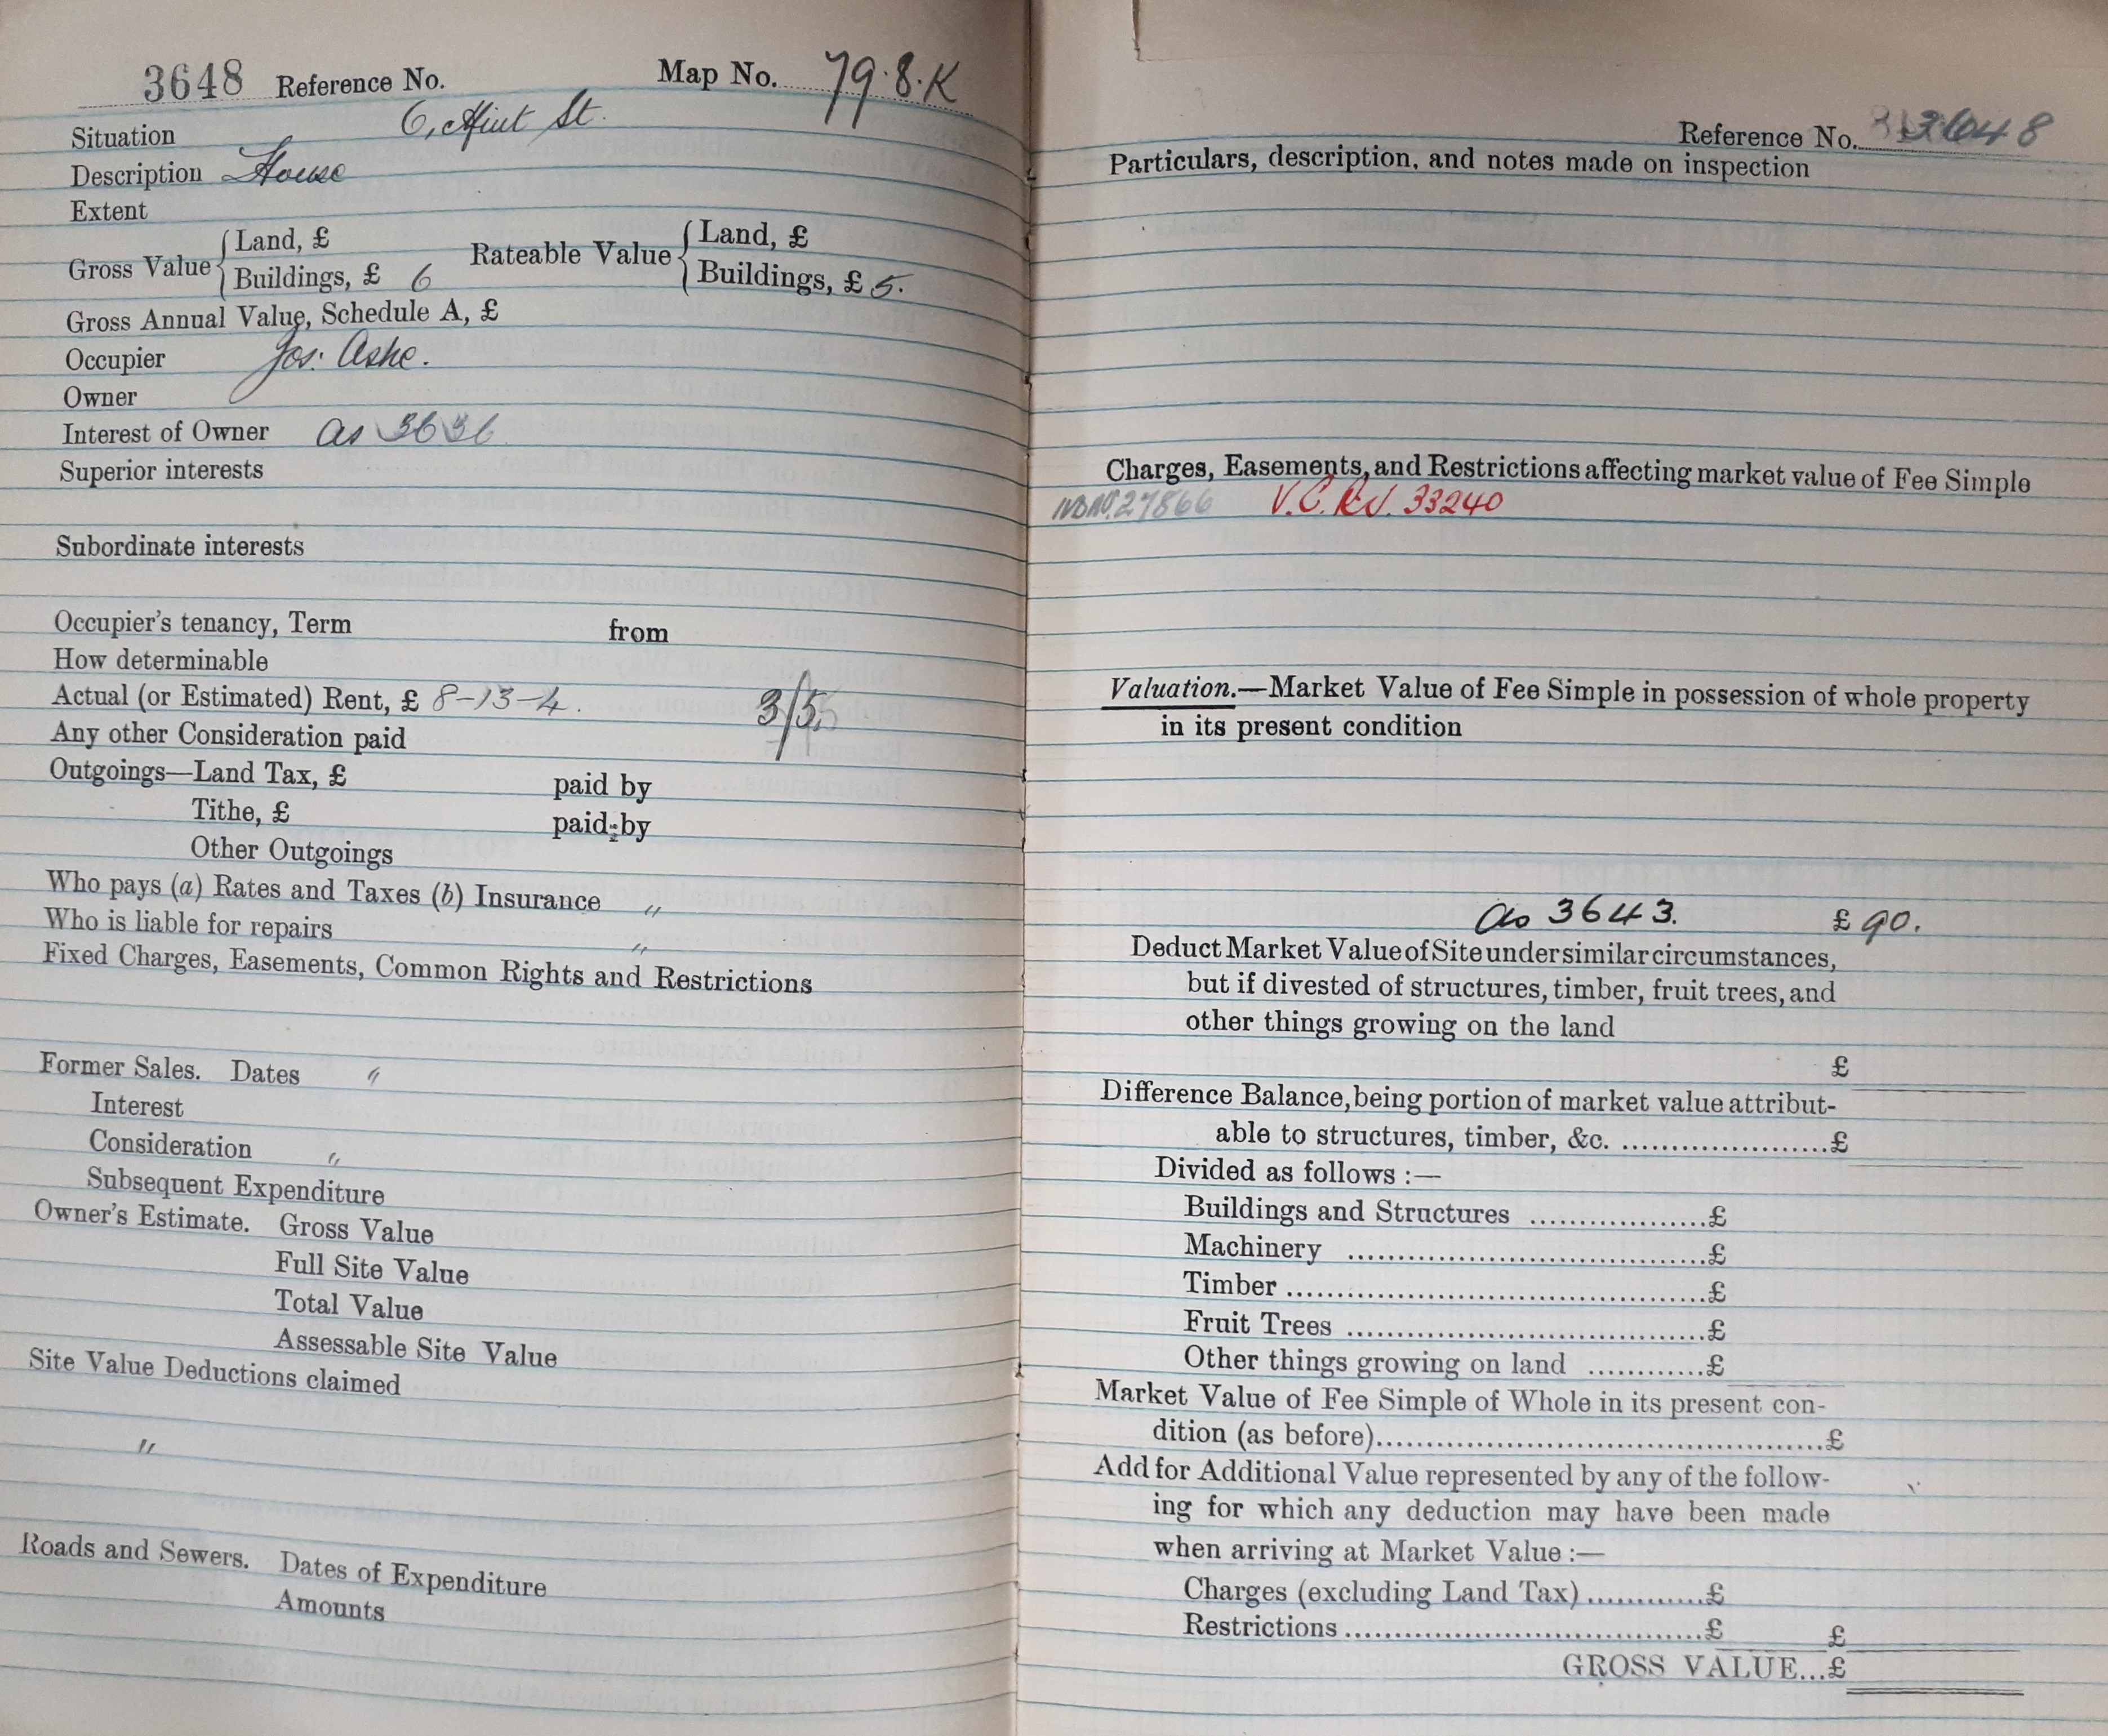 3648 Reference No. Map No. 79.8.K
Situation 6, St.
Description House
Extent
Gross Value { Land, £
Buildings, £ 6
Rateable Value { Land, £
Buildings, £ 5.
Gross Annual Value, Schedule A, £
Occupier Jos: Ashe.
Owner
Interest of Owner as 3636
Superior interests
Subordinate interests
Occupier's tenancy, Term from
How determinable
Actual (or Estimated) Rent, £ 8-13-4. 3/5
Any other Consideration paid
Outgoings—Land Tax, £ paid by
Tithe, £ paid by
Other Outgoings
Who pays (a) Rates and Taxes (b) Insurance "
Who is liable for repairs "
Fixed Charges, Easements, Common Rights and Restrictions
Former Sales. Dates "
Interest
Consideration "
Subsequent Expenditure
Owner's Estimate. Gross Value
Full Site Value
Total Value
Assessable Site Value
Site Value Deductions claimed
"
Roads and Sewers. Dates of Expenditure
Amounts
Reference No. 3648
Particulars, description, and notes made on inspection
Charges, Easements, and Restrictions affecting market value of Fee Simple
27866 V.C. 33240
Valuation.—Market Value of Fee Simple in possession of whole property
in its present condition
as 3643. £ 90.
Deduct Market Value of Site under similar circumstances,
but if divested of structures, timber, fruit trees, and
other things growing on the land
£
Difference Balance, being portion of market value attribut-
able to structures, timber, &c. ....................£
Divided as follows :—
Buildings and Structures ..................£
Machinery ....................................£
Timber ..........................................£
Fruit Trees ....................................£
Other things growing on land ............£
Market Value of Fee Simple of Whole in its present con-
dition (as before)..............................................£
Add for Additional Value represented by any of the follow-
ing for which any deduction may have been made
when arriving at Market Value :—
Charges (excluding Land Tax) ............£
Restrictions ....................................£ £
GROSS VALUE...£